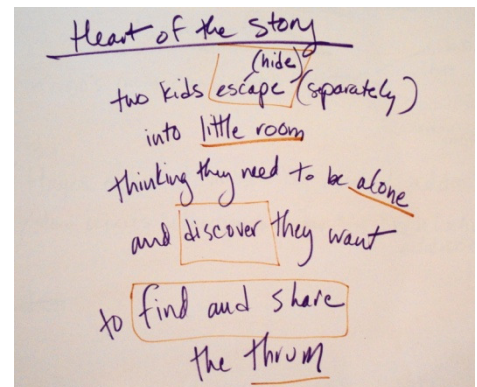 Heart of the story
(hide)
two kids escape (separately)
into little room
thinking they need to be alone
and discover they want
to find and share
the thrum